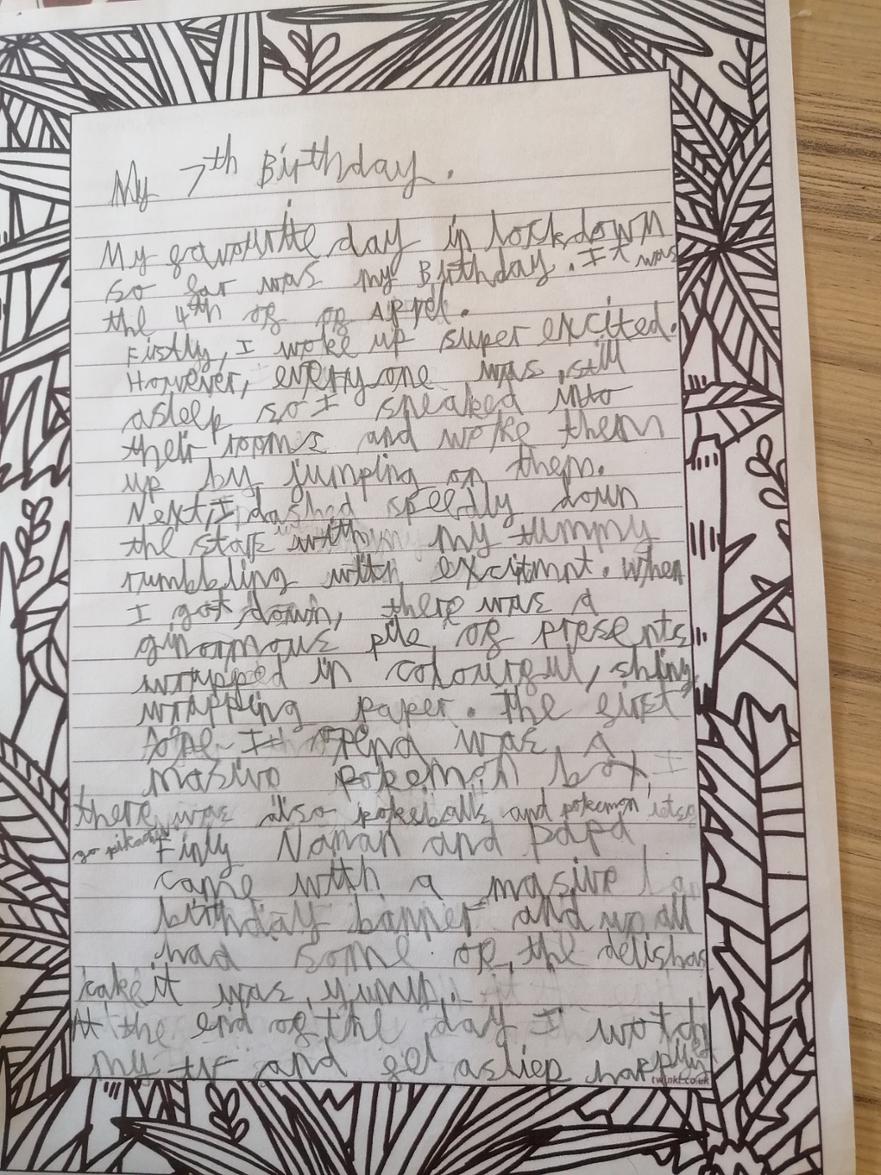 My 7th Birthday.
My favourite day in lockdown
so far was my Birthday. It was
the 4th of of Aprel.
Firstly, I woke up super excited.
However, everyone was still
asleep so I sneaked into
their rooms and woke them
up by jumping on them.
Next, I dashed speedly down
the stairs with my tummy
rumbeling with excitmnt. When
I got down, there was a
ginormous pile of presents
wrapped in colourful, shiny
wrapping paper. The first
one I opend was a
masive pokemon box,
there was also pokeballs and pokemon letsg
go pikachu
Finly Naman and papa
came with a masive
birthday banner and we all
had some of the delishas
cake it was yumy.
At the end of the day I wotch
my TV and fel asliep happily
twinkl.co.uk